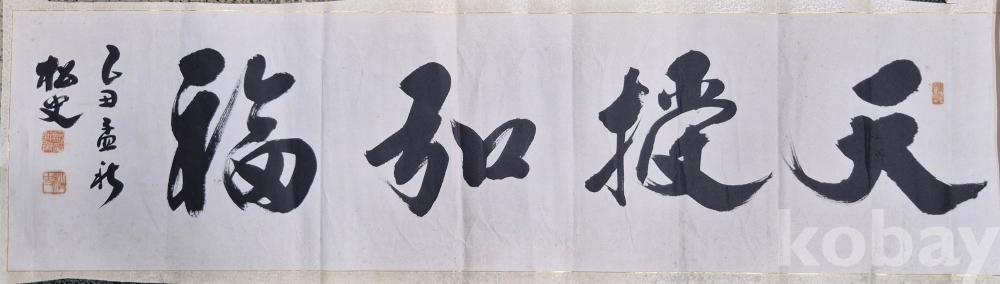 天授弘福
乙丑孟秋
松史
kobay